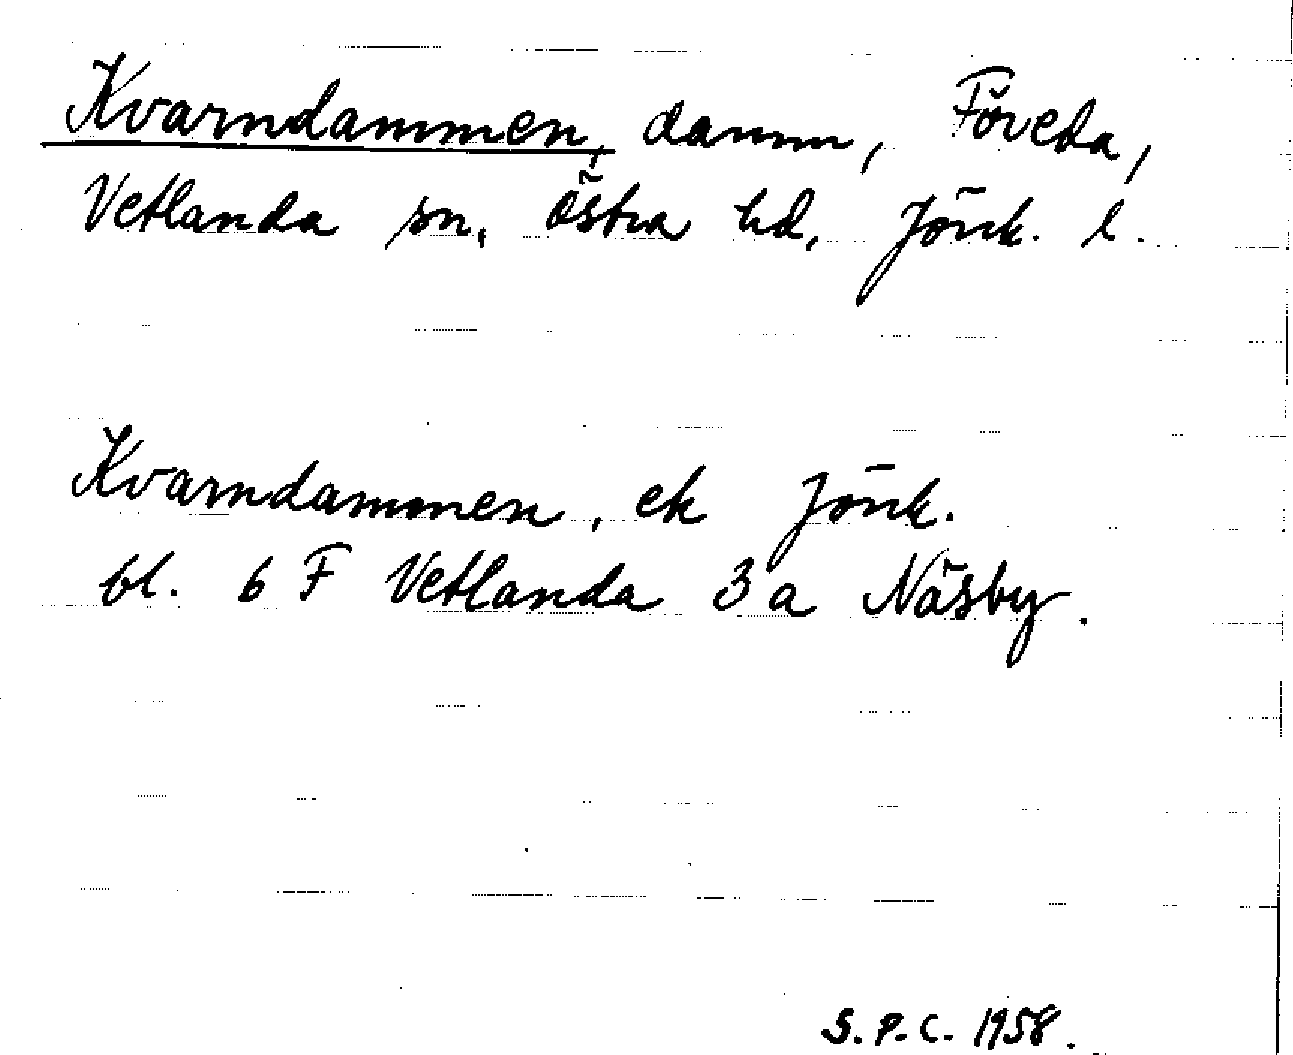 Kvarndammen, damm, Föveda,
Vetlanda sn, Östra hd, Jönk. l.
Kvarndammen, ek Jönk.
bl. 6 F Vetlanda 3 a Näsby.
S.P.C. 1958.